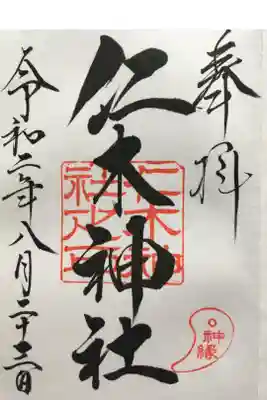 奉拝
仁木神社
仁木神社之印
神縁
令和二年八月二十二日